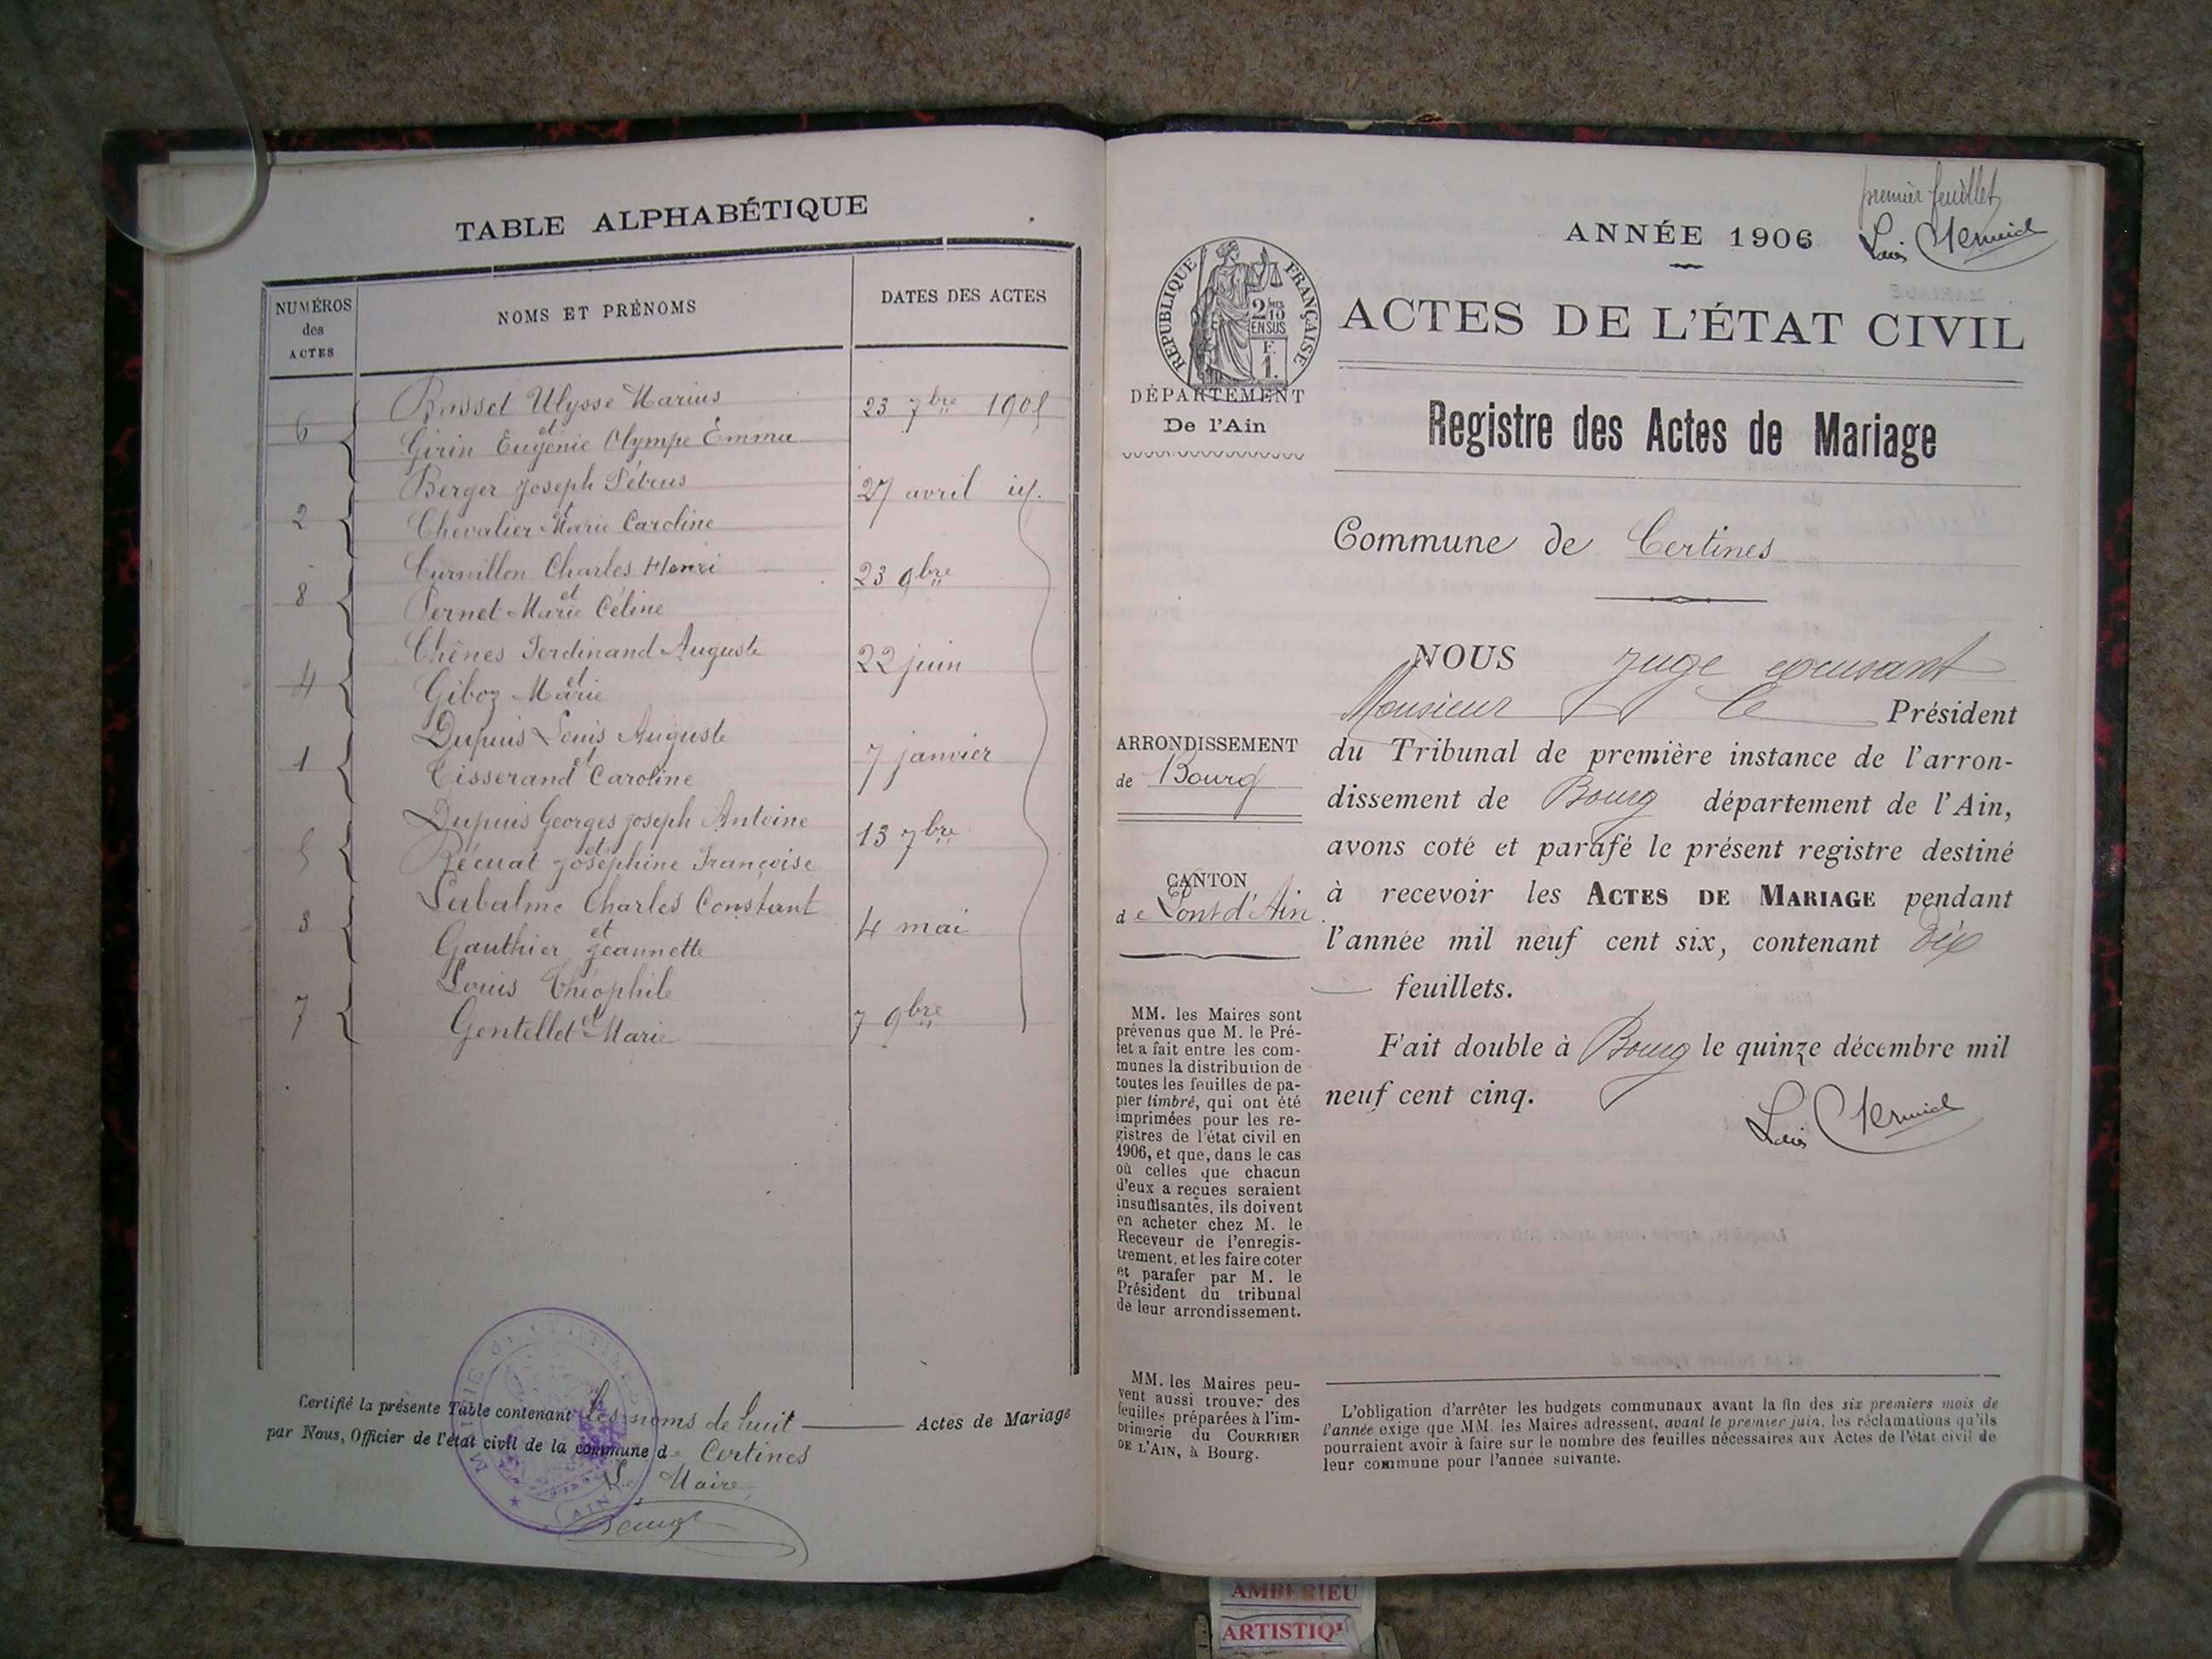 TABLE ALPHABÉTIQUE
NUMÉROS
des
ACTES
NOMS ET PRÉNOMS
DATES DES ACTES
6
Basset Ulysse Marius
et
Girin Eugénie Olympe Emma
23 7bre 1905
2
Berger Joseph Pétrus
et
Chevalier Marie Caroline
27 avril id.
8
Curnillon Charles Henri
et
Pernet Marie Céline
23 9bre
4
Chênes Ferdinand Auguste
et
Giboz Marie
22 juin
1
Dupuis Louis Auguste
et
Tisserand Caroline
7 janvier
5
Dupuis Georges Joseph Antoine
et
Récuat Joséphine Françoise
13 7bre
3
Labalme Charles Constant
et
Gauthier Jeannette
4 mai
7
Louis Théophile
et
Gentellet Marie
7 9bre
Certifié la présente Table contenant les noms de huit Actes de Mariage
par Nous, Officier de l'état civil de la commune de Certines
Le Maire
MAIRIE DE CERTINES
(AIN)
premier feuillet
ANNÉE 1906
RÉPUBLIQUE FRANÇAISE
2/10
EN SUS
F.
1.
ACTES DE L'ÉTAT CIVIL
DÉPARTEMENT
De l'Ain
Registre des Actes de Mariage
Commune de Certines
NOUS Juge excusant
Monsieur le Président
du Tribunal de première instance de l'arron-
dissement de Bourg département de l'Ain,
avons coté et parafé le présent registre destiné
à recevoir les ACTES DE MARIAGE pendant
l'année mil neuf cent six, contenant dix
feuillets.
Fait double à Bourg le quinze décembre mil
neuf cent cinq.
ARRONDISSEMENT
de Bourg
CANTON
de Pont d'Ain
MM. les Maires sont
prévenus que M. le Pré-
fet a fait entre les com-
munes la distribution de
toutes les feuilles de pa-
pier timbré, qui ont été
imprimées pour les re-
gistres de l'état civil en
1906, et que, dans le cas
où celles que chacun
d'eux a reçues seraient
insuffisantes, ils doivent
en acheter chez M. le
Receveur de l'enregis-
trement, et les faire coter
et parafer par M. le
Président du tribunal
de leur arrondissement.
MM. les Maires peu-
vent aussi trouver des
feuilles préparées à l'im-
primerie du COURRIER
DE L'AIN, à Bourg.
L'obligation d'arrêter les budgets communaux avant la fin des six premiers mois de
l'année exige que MM. les Maires adressent, avant le premier juin, les réclamations qu'ils
pourraient avoir à faire sur le nombre des feuilles nécessaires aux Actes de l'état civil de
leur commune pour l'année suivante.
AMBERIEU
ARTISTIQ